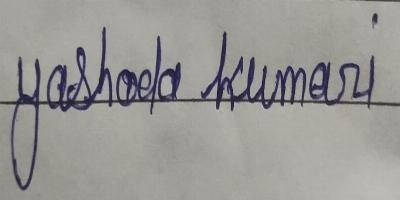 yashoda kumari